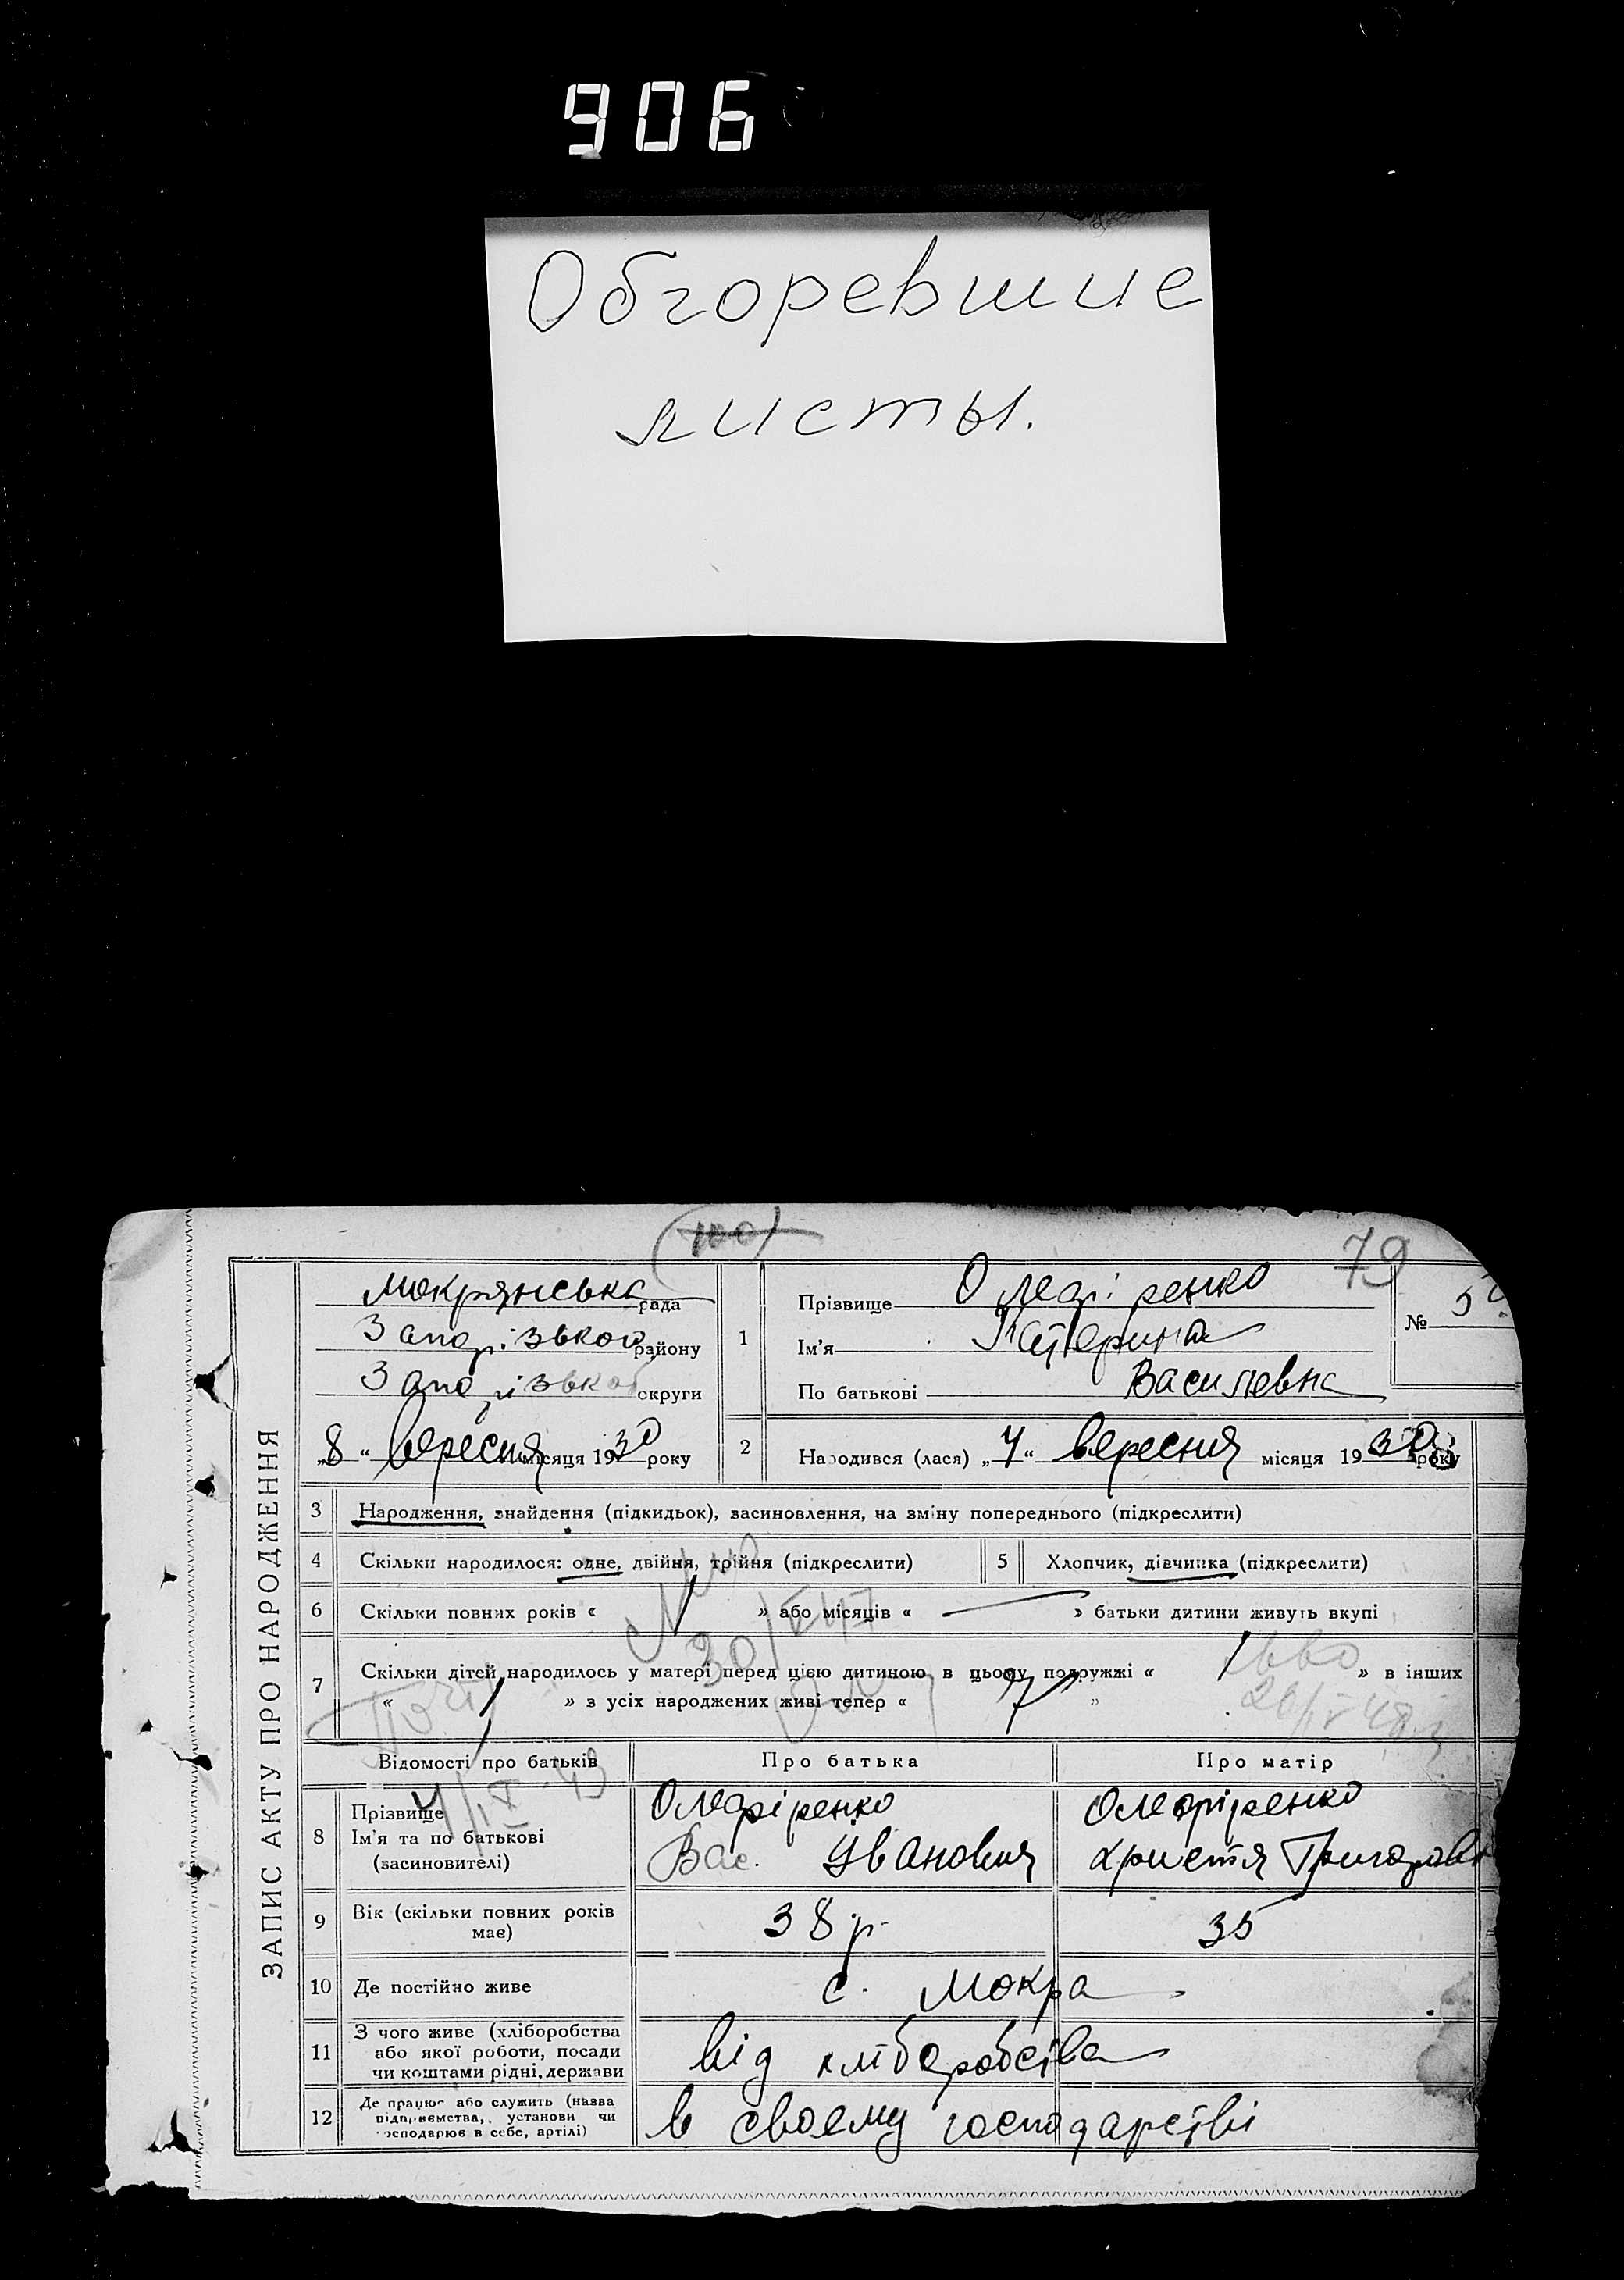 906
Обгоревшие
листы.
(100)
79
Мокрянська рада
Запорізького району
Запорізької округи
„8“ вересня місяця 1930 року
1
Прізвище Олефіренко
Ім'я Катерина
По батькові Василевна
№ 5
2
Народився (лася) „7“ вересня місяця 1930 року
ЗАПИС АКТУ ПРО НАРОДЖЕННЯ
3 Народження, знайдення (підкидьок), засиновлення, на зміну попереднього (підкреслити)
4 Скільки народилося: одне, двійня, трійня (підкреслити) 5 Хлопчик, дівчинка (підкреслити)
6 Скільки повних років « 1 » або місяців « — » батьки дитини живуть вкупі
7 Скільки дітей народилось у матері перед цією дитиною в цьому подружжі « 1 » в інших
« 1 » з усіх народжених живі тепер « »
Відомості про батьків Про батька Про матір
8 Прізвище Олефіренко Олефіренко
Ім'я та по батькові Вас. Іванович Христя Григорівн
(засиновителі)
9 Вік (скільки повних років має) 38 р. 35
10 Де постійно живе с. Мокра
11 З чого живе (хліборобства
або якої роботи, посади від хліборобства
чи коштами рідні, держави
12 Де працює або служить (назва
підприємства, установи чи в своєму господарстві
господарює в себе, артілі)